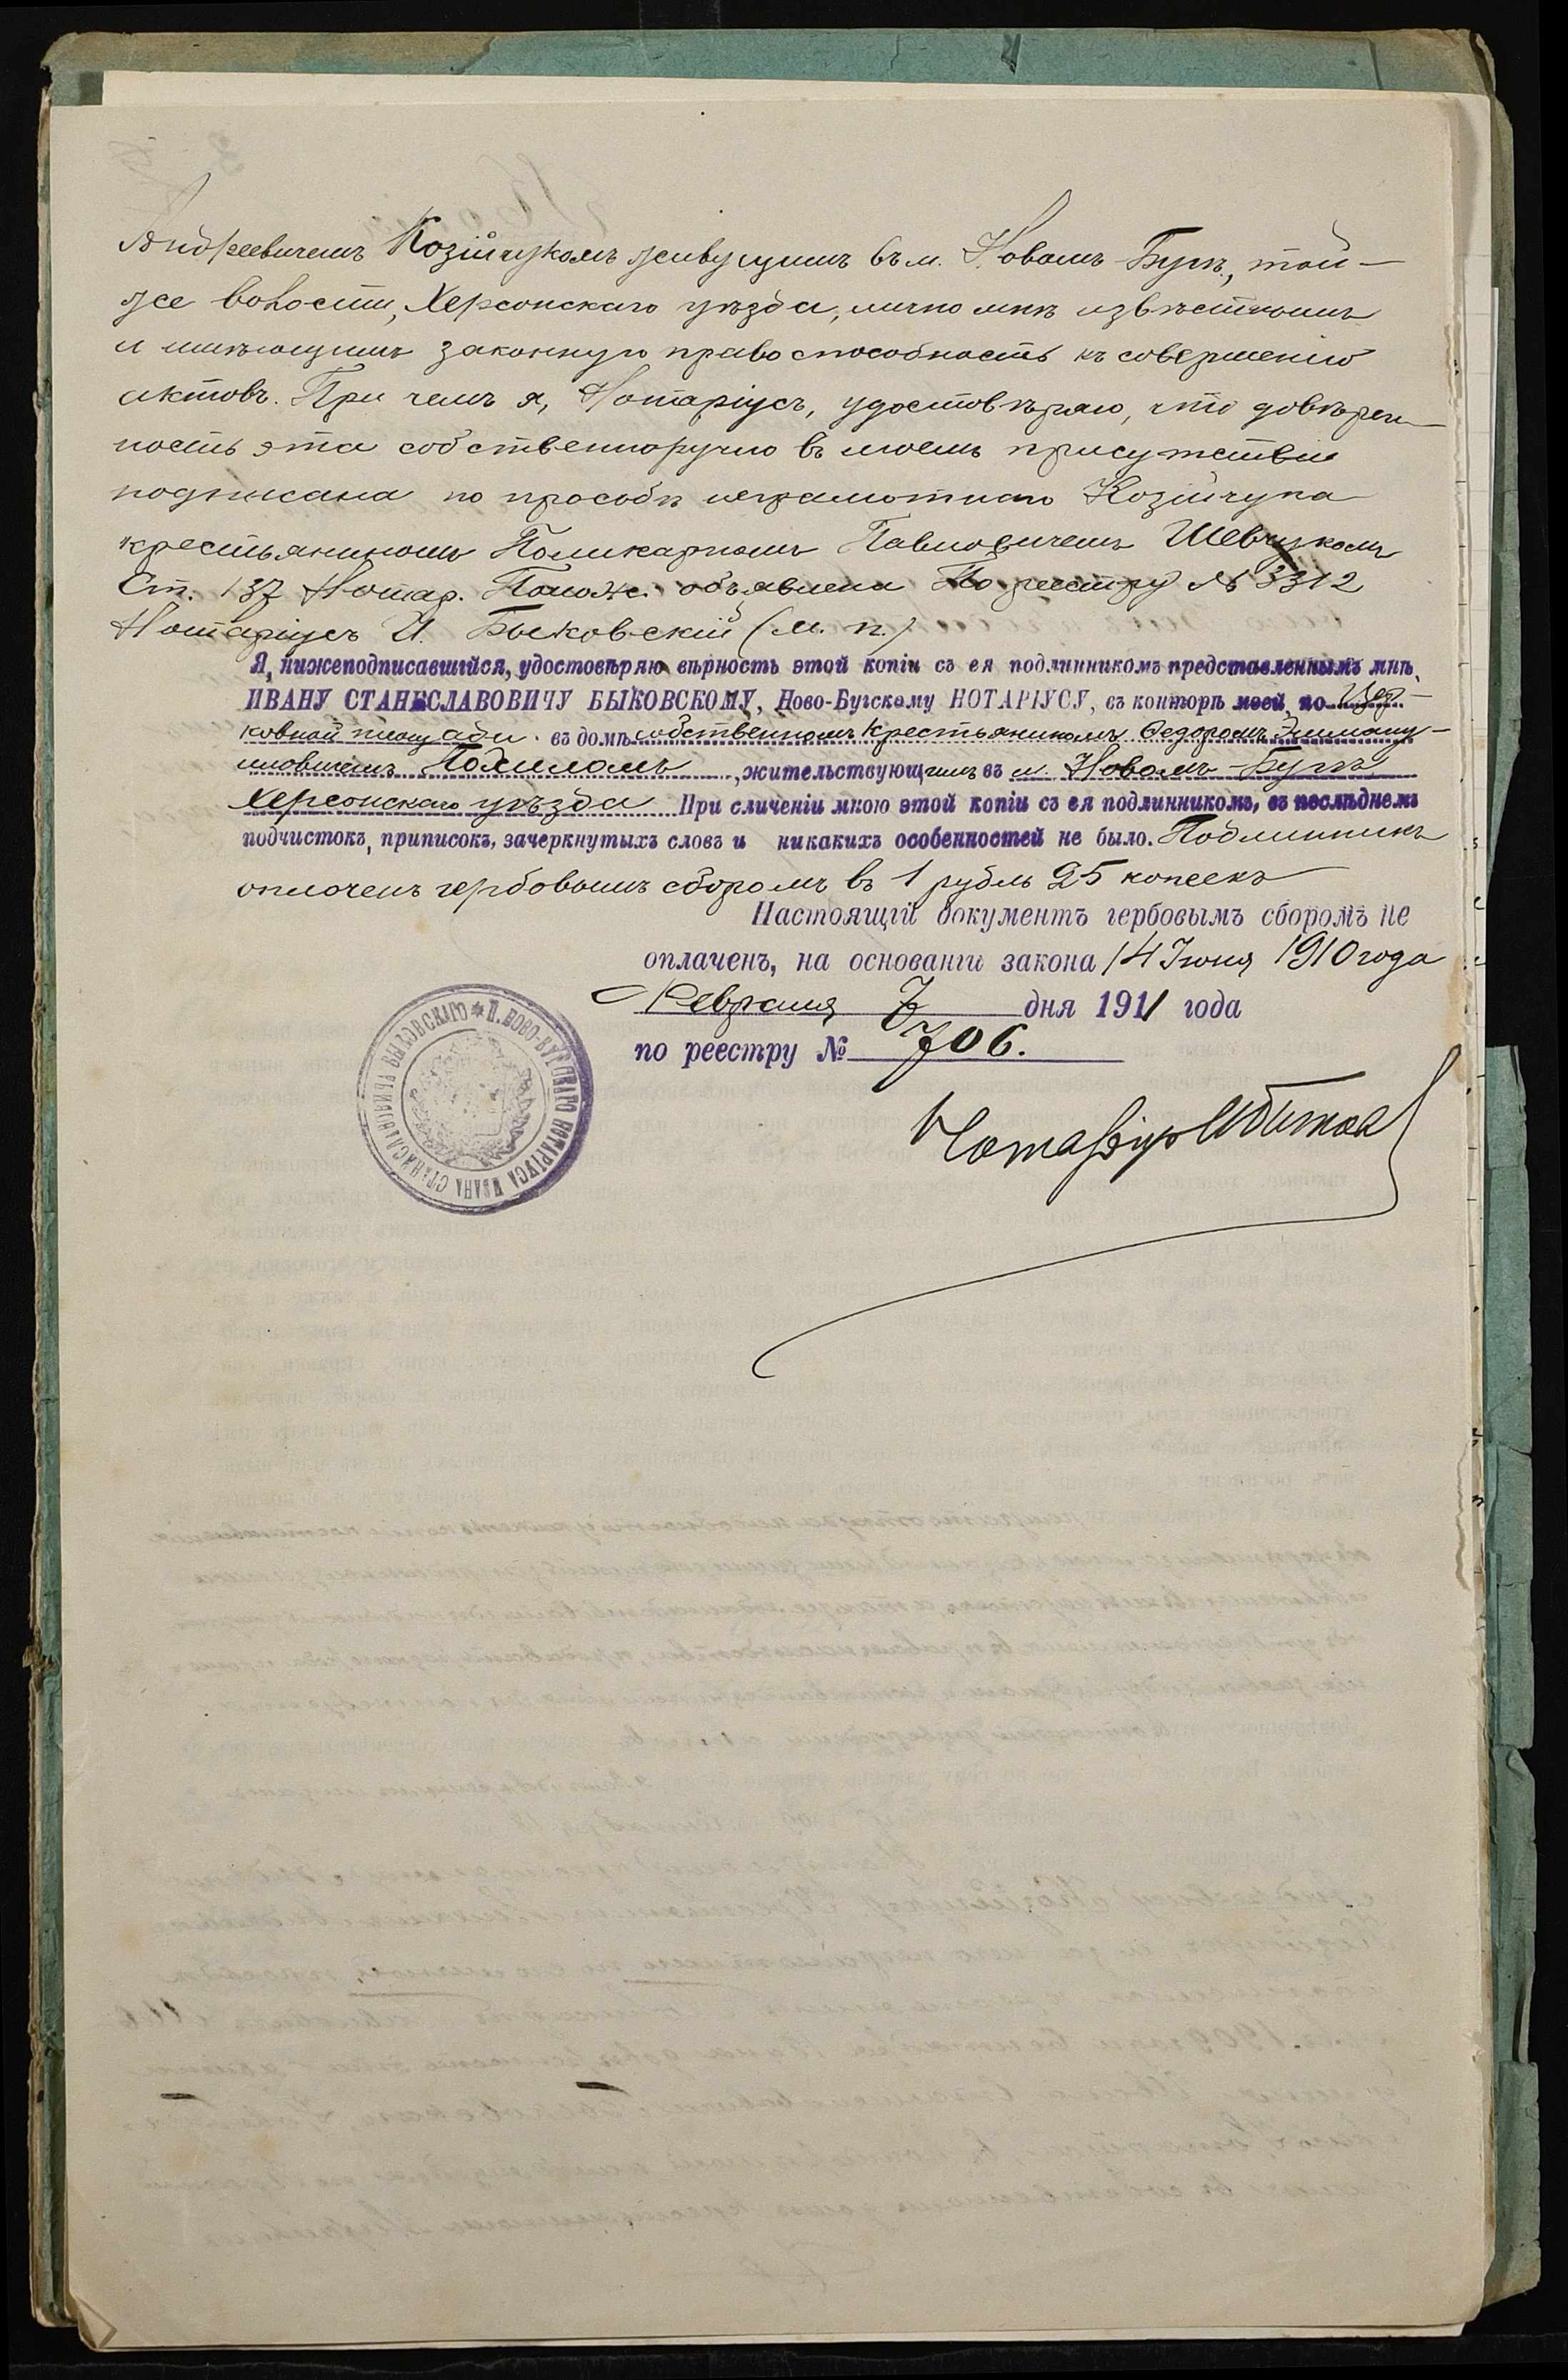 Андреевичемъ Козійчукомъ живущимъ въ м. Новомъ-Бугѣ, той-
же волости, Херсонскаго уѣзда, лично мнѣ извѣстнымъ
и имѣющимъ законную правоспособность къ совершенію
актовъ. При чемъ я, Нотаріусъ, удостовѣряю, что довѣрен-
ность эта собственноручно въ моемъ присутствіи
подписана по просьбѣ неграмотнаго Козійчука
крестьяниномъ Поликарпомъ Павловичемъ Шевчукомъ
Ст. 137 Нотар. Полож. объявлена По реестру № 3312
Нотаріусъ И. Быковскій (М. П.)
Я, нижеподписавшійся, удостовѣряю вѣрность этой копіи съ ея подлинникомъ представленнымъ мнѣ,
ИВАНУ СТАНИСЛАВОВИЧУ БЫКОВСКОМУ, Ново-Бугскому НОТАРІУСУ, въ конторѣ моей, по Цер-
ковной площади въ домѣ собственномъ крестьяниномъ Федоромъ
Похиломъ, жительствующимъ въ м. Новомъ-Бугѣ
Херсонскаго уѣзда При сличеніи мною этой копіи съ ея подлинникомъ, въ послѣднемъ
подчистокъ, приписокъ, зачеркнутыхъ словъ и никакихъ особенностей не было. Подлинникъ
оплоченъ гербовымъ сборомъ въ 1 рубль 25 копеекъ
Настоящій документъ гербовымъ сборомъ не
оплаченъ, на основаніи закона 14 Іюня 1910 года
Февраля 7 дня 1911 года
по реестру № 706.
И. НОВО-БУГСКАГО НОТАРІУСА ИВАНА СТАНИСЛАВОВИЧА БЫКОВСКАГО
Нотаріусъ